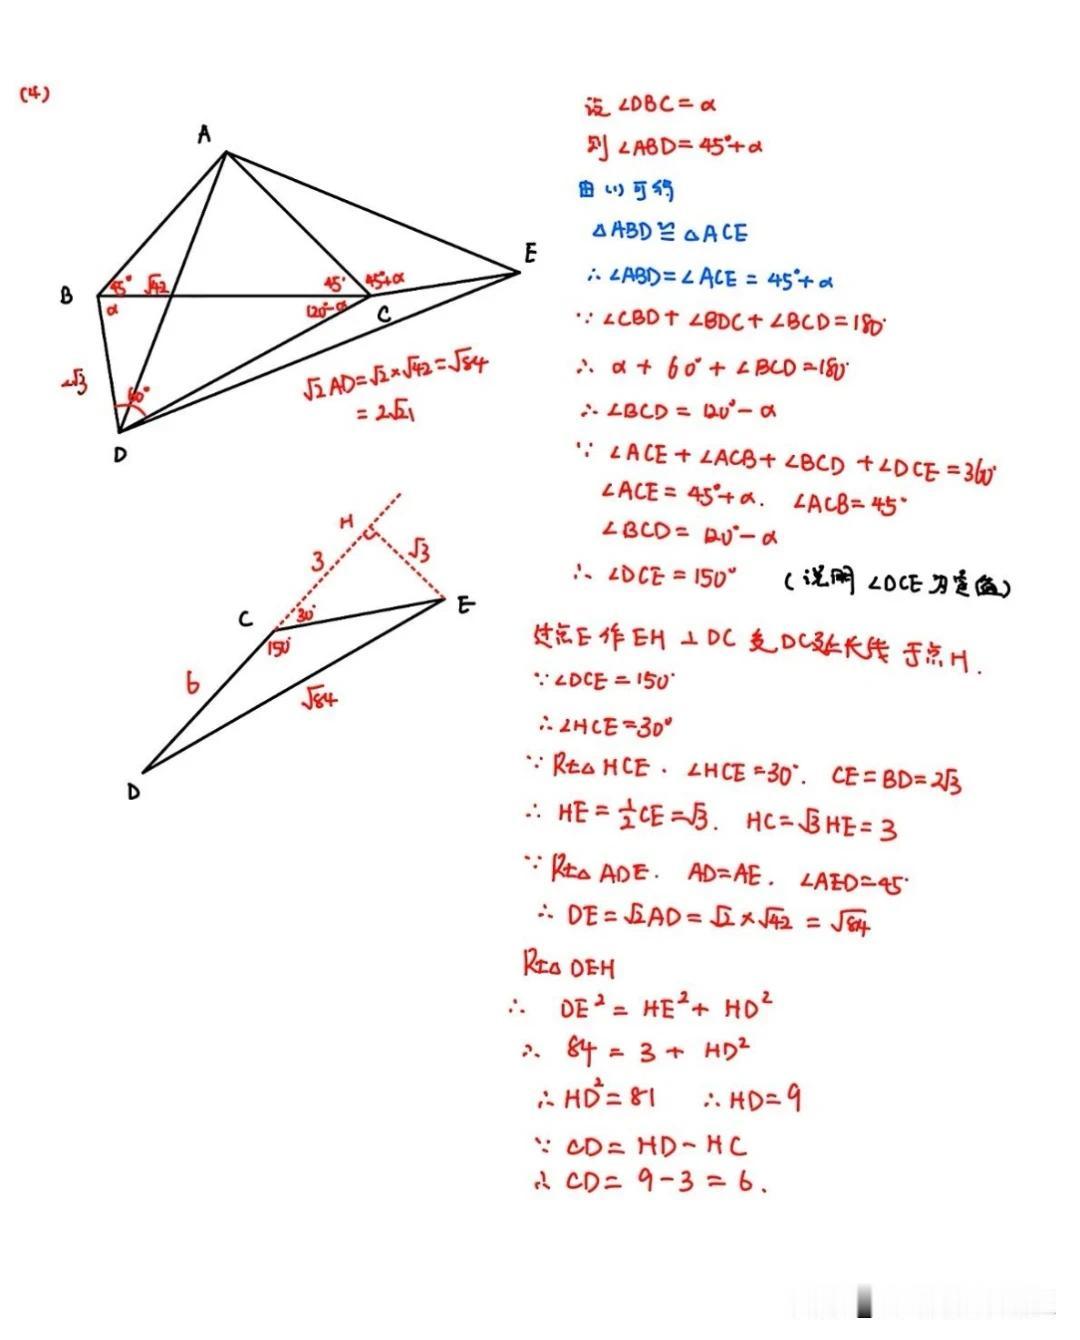 (4)
A
B
C
D
E
45°
√42
α
45°
45°+α
120°-α
2√3
60°
√2AD=√2×√42=√84
=2√21
H
C
E
D
3
√3
30°
150°
6
√84
设∠DBC=α
则∠ABD=45°+α
由(1)可得
△ABD≌△ACE
∴∠ABD=∠ACE=45°+α
∵∠CBD+∠BDC+∠BCD=180°
∴α+60°+∠BCD=180°
∴∠BCD=120°-α
∵∠ACE+∠ACB+∠BCD+∠DCE=360°
∠ACE=45°+α. ∠ACB=45°
∠BCD=120°-α
∴∠DCE=150° (说明∠DCE为定值)
过点E作EH⊥DC交DC延长线于点H.
∵∠DCE=150°
∴∠HCE=30°
∵Rt△HCE. ∠HCE=30°. CE=BD=2√3
∴HE=½CE=√3. HC=√3HE=3
∵Rt△ADE. AD=AE. ∠AED=45°
∴DE=√2AD=√2×√42=√84
Rt△DEH
∴DE²=HE²+HD²
∴84=3+HD²
∴HD²=81 ∴HD=9
∵CD=HD-HC
∴CD=9-3=6.